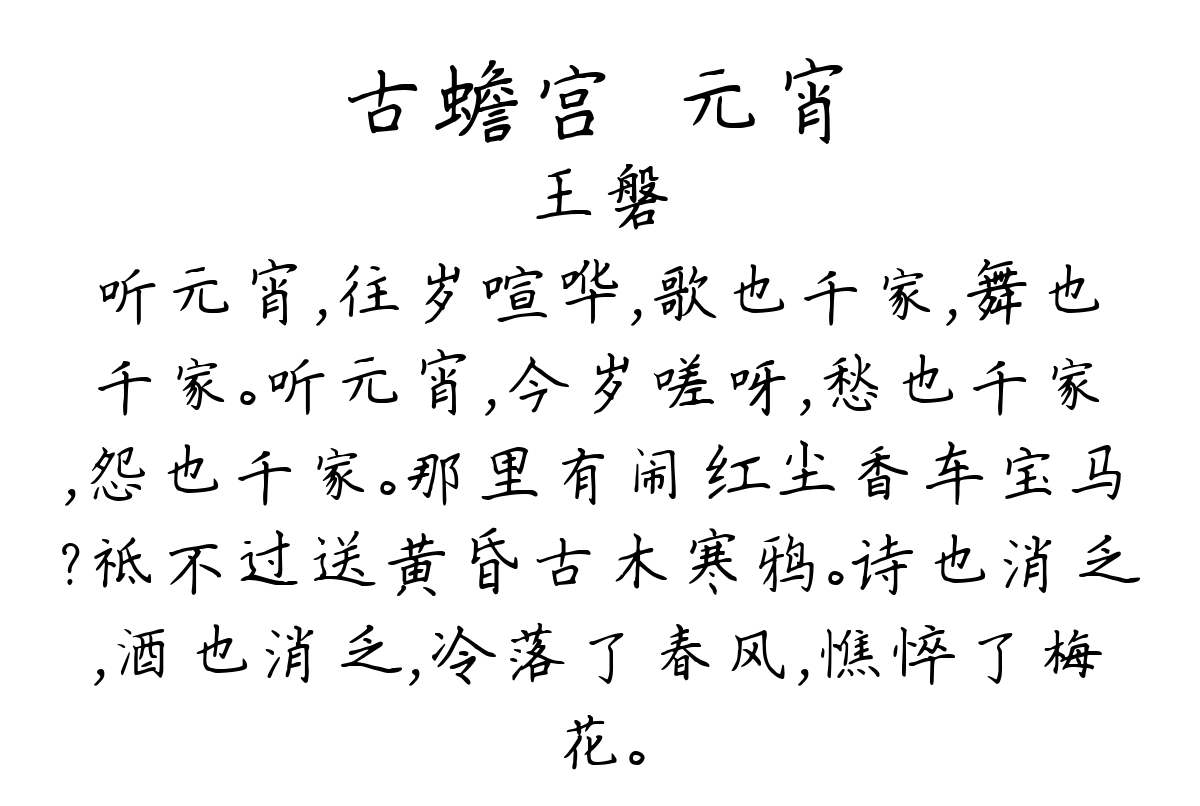 古蟾宫 元宵
王磐
听元宵,往岁喧哗,歌也千家,舞也
千家。听元宵,今岁嗟呀,愁也千家
,怨也千家。那里有闹红尘香车宝马
?祗不过送黄昏古木寒鸦。诗也消乏
,酒也消乏,冷落了春风,憔悴了梅
花。